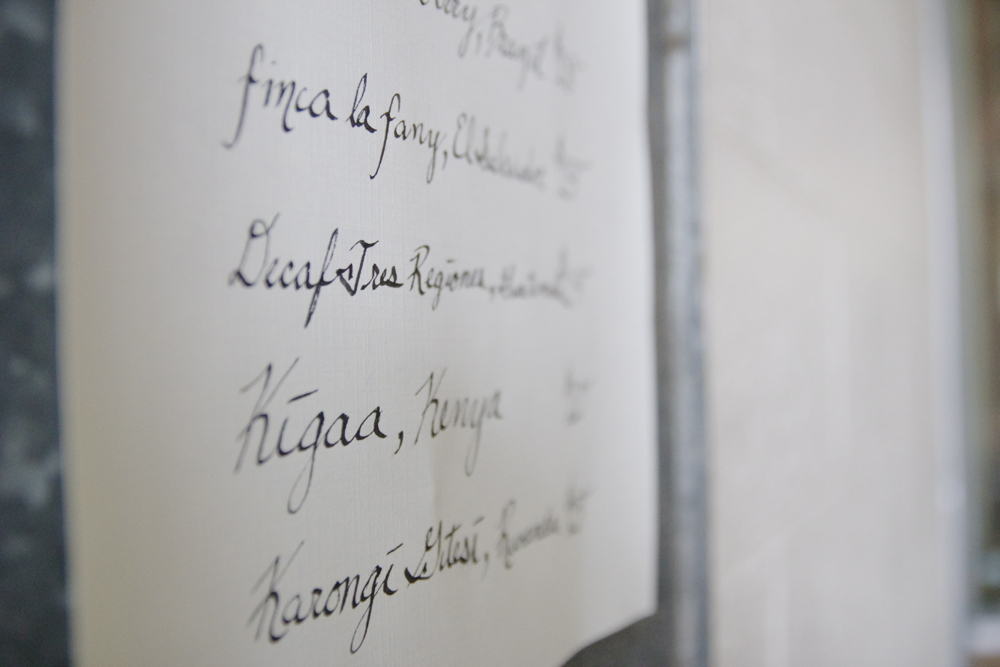 Brazil
finca la fany, El Salvador
Decaf Tres Regiones,
Kigaa, Kenya
Karongi Gitesi, Rwanda